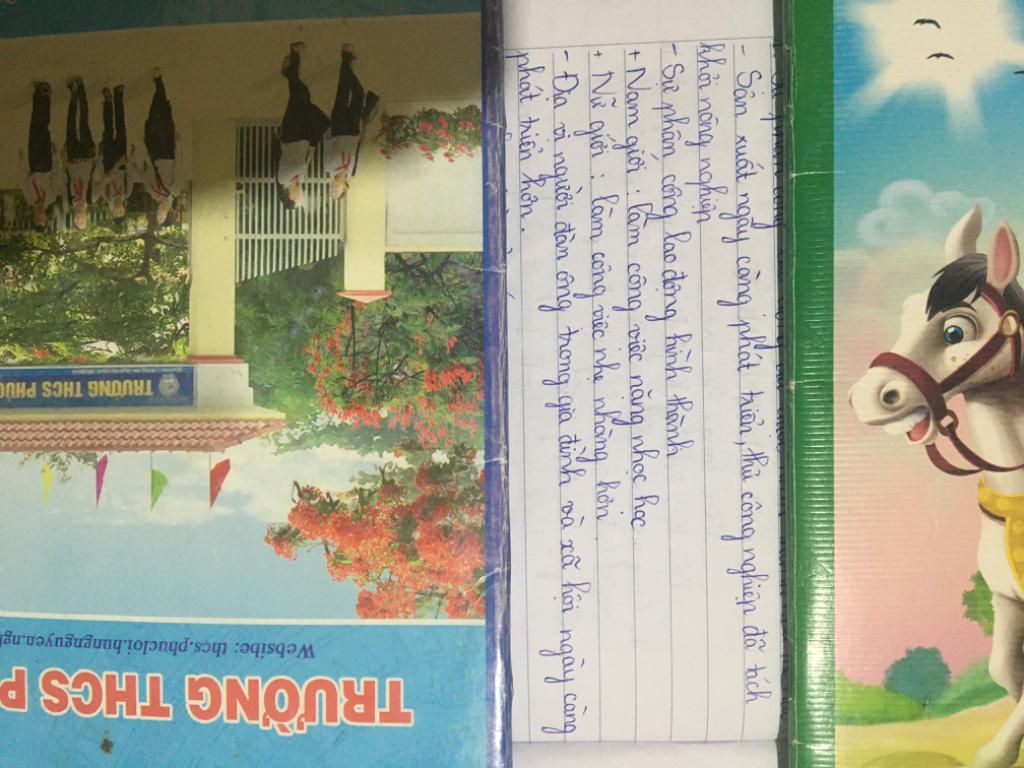 - Sản xuất ngày càng phát triển, thủ công nghiệp đã tách
khỏi nông nghiệp
- Sự phân công lao động hình thành
+ Nam giới : làm công việc nặng nhọc học
+ Nữ giới : làm công việc nhẹ nhàng hơn.
- Địa vị người đàn ông trong gia đình và xã hội ngày càng
phát triển hơn.
TRƯỜNG THCS PHÚC
Websibe: thcs.phucloi.hungnguyen.ngh
TRƯỜNG THCS P